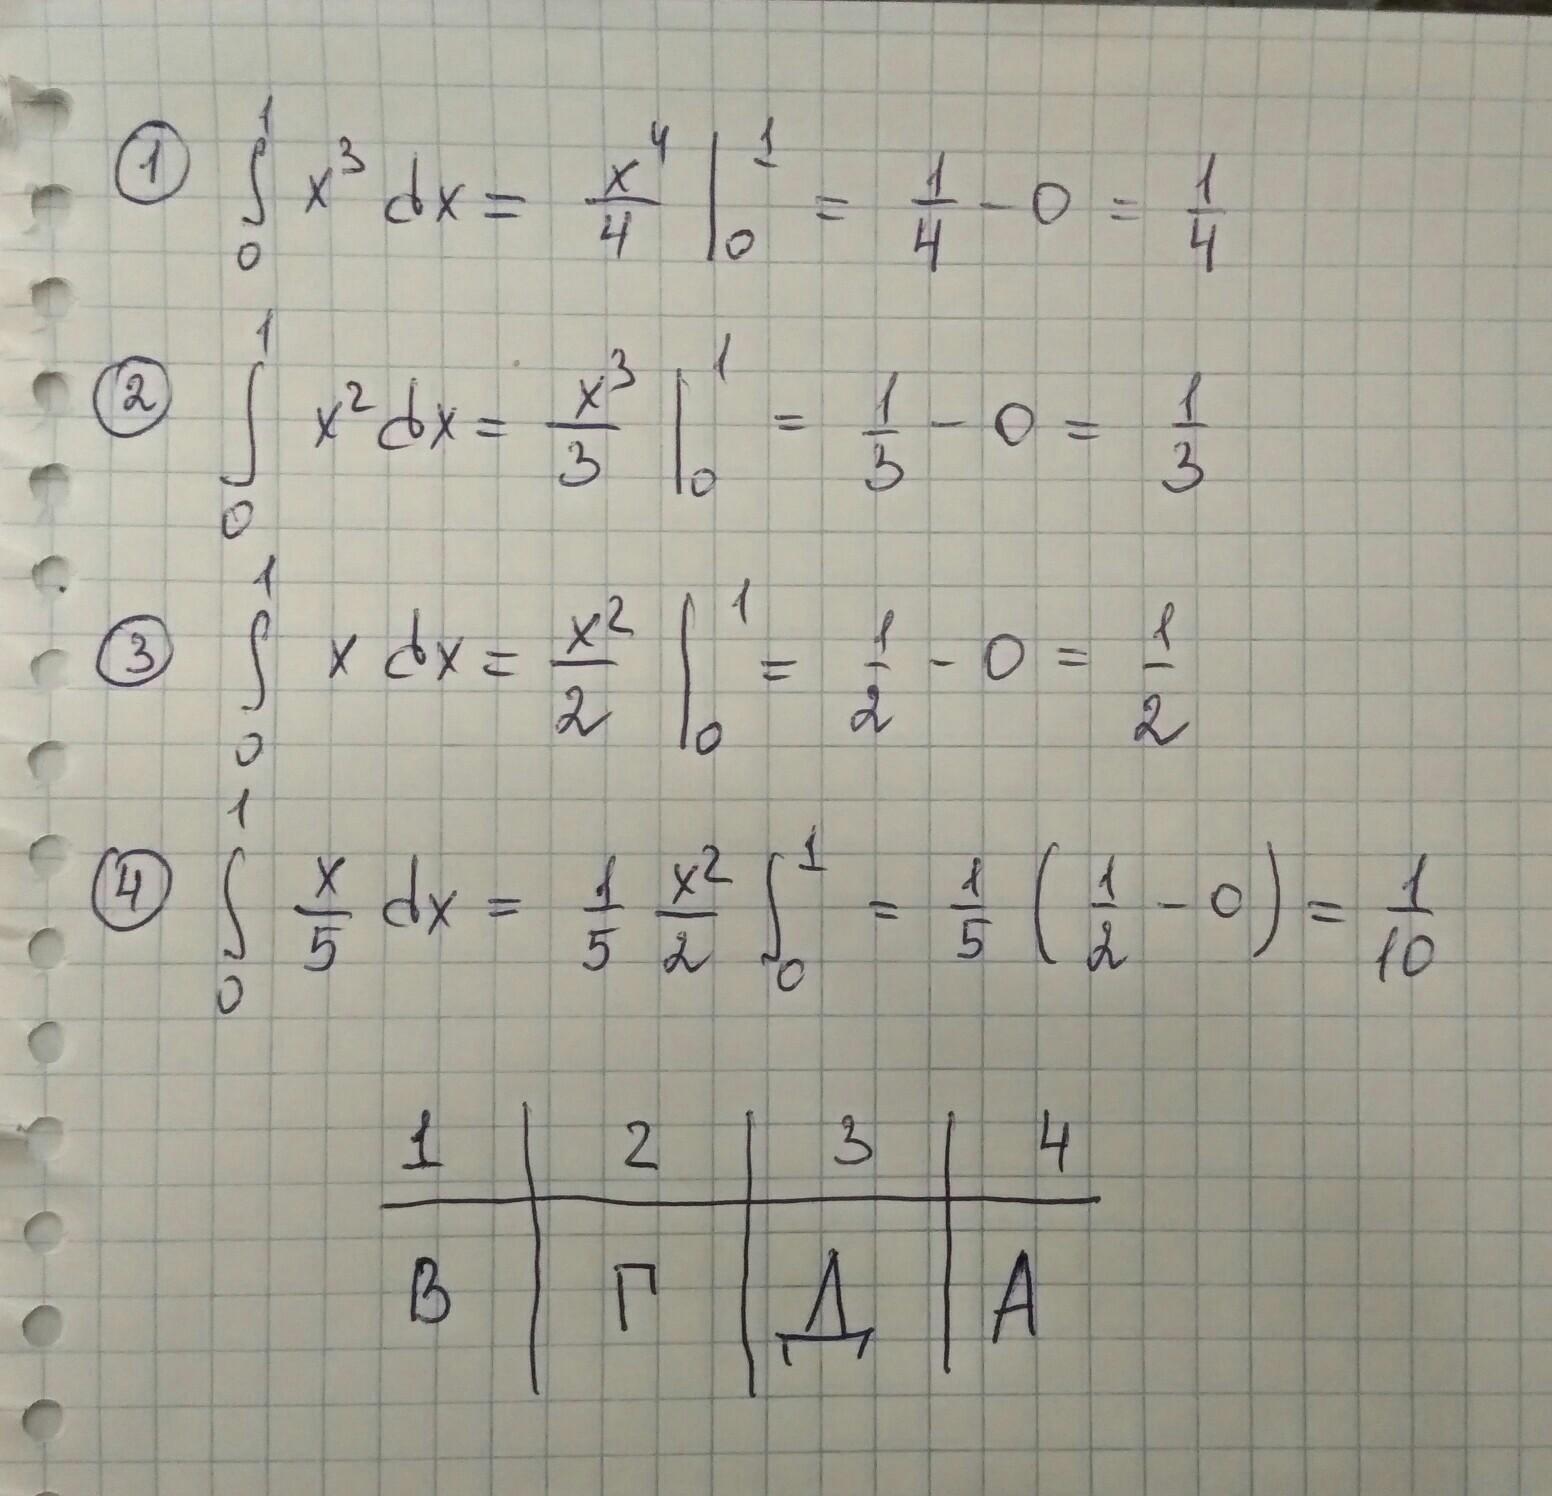 ① ∫₀¹ x³ dx = x⁴/4 |₀¹ = 1/4 - 0 = 1/4
② ∫₀¹ x² dx = x³/3 |₀¹ = 1/3 - 0 = 1/3
③ ∫₀¹ x dx = x²/2 |₀¹ = 1/2 - 0 = 1/2
④ ∫₀¹ x/5 dx = 1/5 x²/2 ∫₀¹ = 1/5 (1/2 - 0) = 1/10
1 | 2 | 3 | 4
В | Г | Д | А